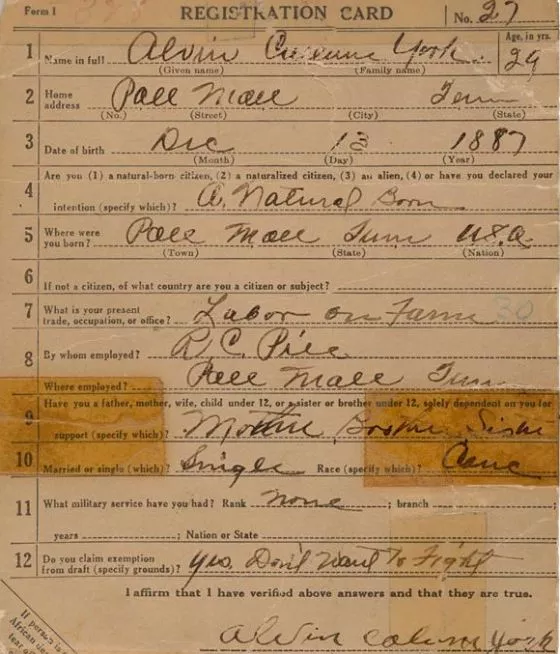 Form 1
REGISTRATION CARD No. 27
1 Name in full Alvin Cullum York. Age, in yrs. 29
(Given name) (Family name)
2 Home address Pall Mall Tenn
(No.) (Street) (City) (State)
3 Date of birth Dec 13 1887
(Month) (Day) (Year)
Are you (1) a natural-born citizen, (2) a naturalized citizen, (3) an alien, (4) or have you declared your
4 intention (specify which)? A. Natural Born
5 Where were you born? Pall Mall Tenn U.S.A.
(Town) (State) (Nation)
6 If not a citizen, of what country are you a citizen or subject?
7 What is your present trade, occupation, or office? Labor on Farm 30
8 By whom employed? R. C. Pile
Where employed? Pall Mall Tenn
Have you a father, mother, wife, child under 12, or a sister or brother under 12, solely dependent on you for
9 support (specify which)? Mother, Brother Sister
10 Married or single (which)? Single Race (specify which)? Cauc
11 What military service have you had? Rank None ; branch ;
years ; Nation or State
12 Do you claim exemption from draft (specify grounds)? Yes. Don't Want To Fight
I affirm that I have verified above answers and that they are true.
Alvin Cullum York
If person is
African
tear